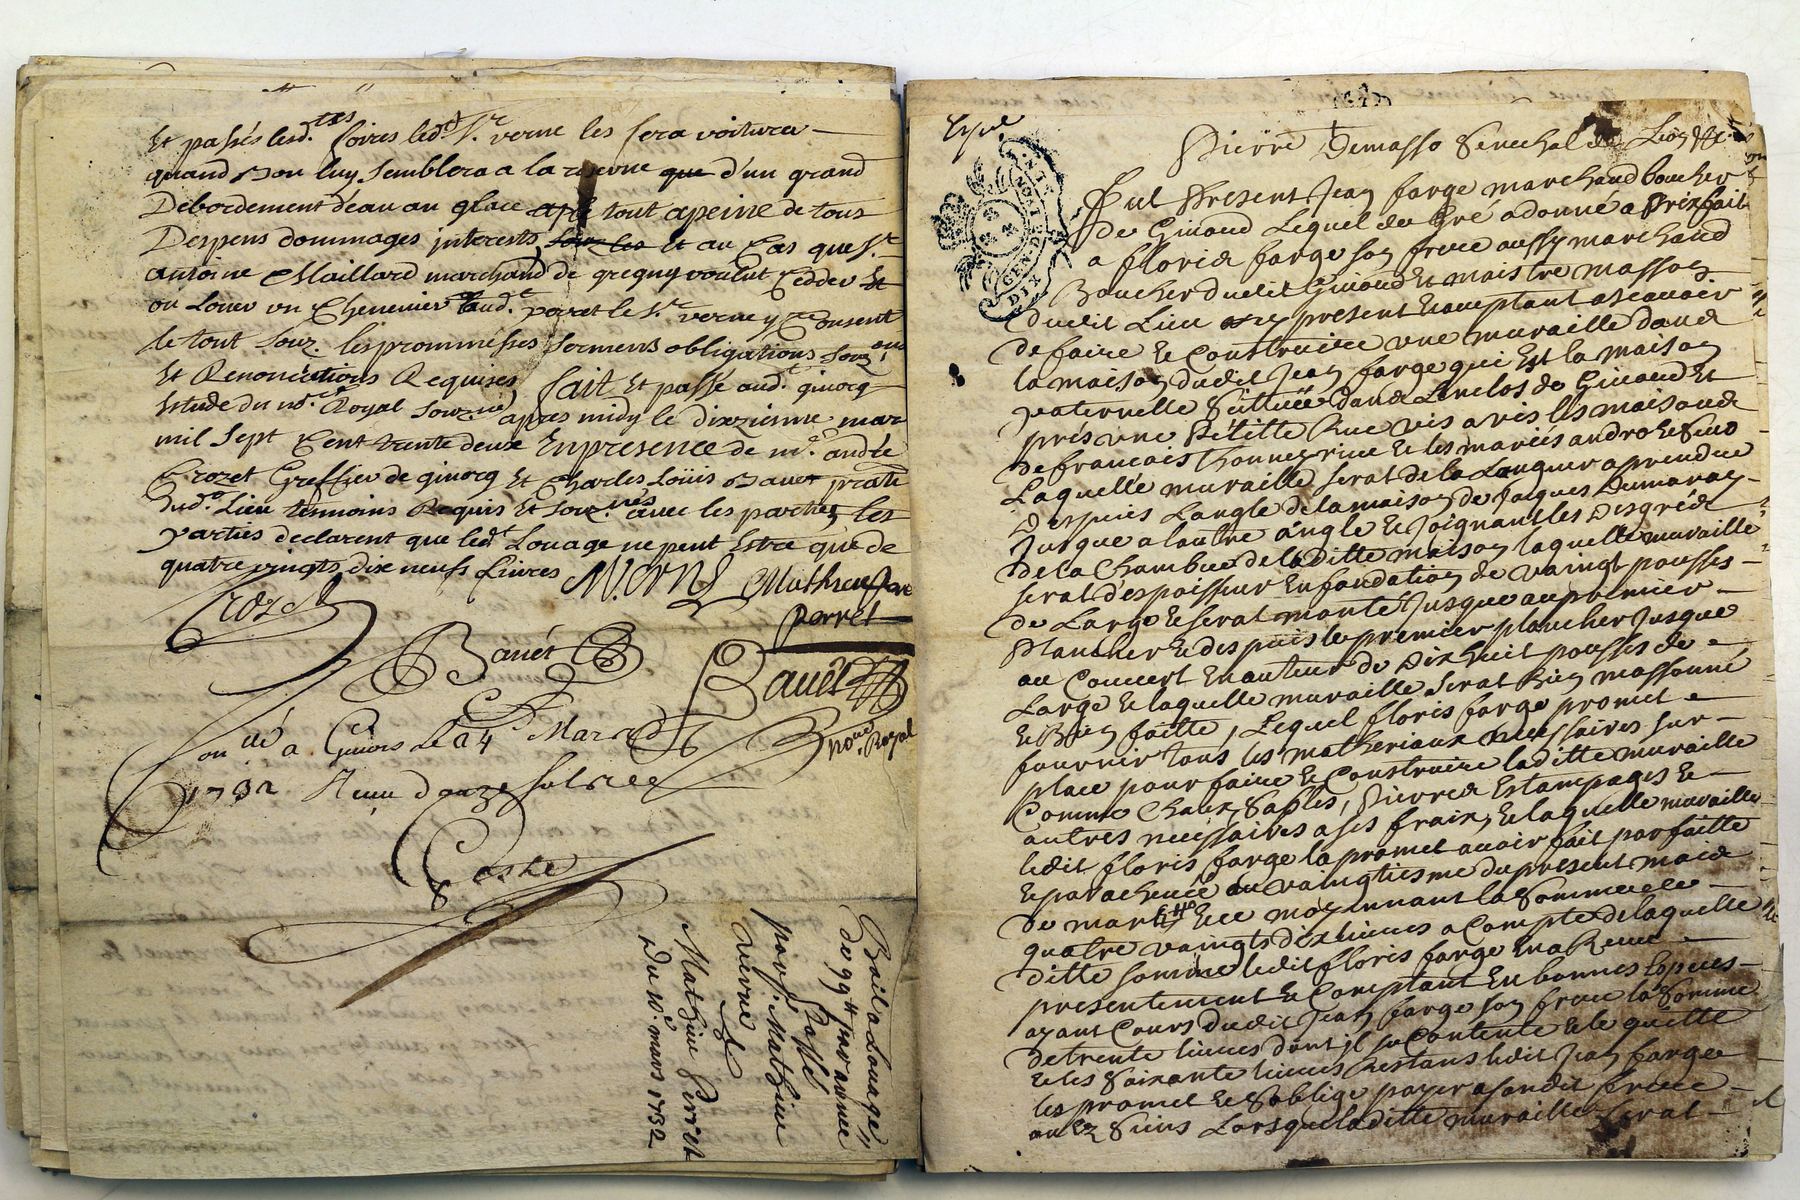 Et passés lesd.tes foires led.t S.r verne les fera voiturer
quand bon luy semblera a la reserve que d'un grand
Debordement d'eau ou glace tout apeine de tous
Despens dommages interests sous les Et au Cas que S.r
antoine Maillard marchand de gregny voulut Ceder Et
ou Louer un Chenevier aud.t perret le S.r verne y Consent
le tout souz. les prommesses sermens obligations souz.ons
Et Renonciations Requises fait Et passé aud.t givorg
Estude du no.re Royal sourné apres midy le dixzieme mar
mil sept Cent trente deux Enpresence de m.e andré
Crozet Greffier de givorg Et Charles Loüis Bauet prati
dud.t Lieu temoins Requis Et souz.nés avec les parties les
parties declarent que led.t Louage ne peut Estre que de
quatre vingts dix neufs livres
Crozet
Verne
Mathieu
perret
Bauet
Bauet
no.re Royal
a Givors le 24 Mars
1732 Receu douze sols
Coste
Bail a Louage
de 99 tt par année
Passé
par S.r Mathieu
vierne
A
Mathieu Perret
Du 10.e mars 1732
GEN DE LION
DIX
Pierre Demasso senechal de Lion
Fut Present Jean farge marchand boucher
De Givord Lequel de Gré a donné a Prixfait
a floris farge son frere aussy marchand
Boucher dudit Givord Et maistre masson
dudit Lieu present Et acceptant ascauoir
de faire Et Construire une muraille dans
la maison dudit Jean farge qui Est la maison
paternelle Scittuée dans Lenclos de Givord Et
prés une petitte Rue vis a vis les maisons
de francois Et les mariés
Laquelle muraille serat de la Longueur a prendre
Despuis Langle de la maison de Jacques Dumaray
Jusque a lautre angle Et Joignant les Degrés
de la Chambre de laditte maison laquelle muraille
serat despaisseur En fondation de vaingt pousses
de Large Et serat montée Jusque au premier
Plancher Et despuis le premier plancher Jusque
au Couuert En auteur de Dix huit pousses de
Large Et laquelle muraille serat Bien massonné
Et Bien faitte, Lequel floris farge promet
fournir tous les matheriaux necessaires sur
place pour faire Et Construire laditte muraille
Comme Chaux, Sables, Pierres Estampages Et
autres necessaires a ses fraix, Et laquelle muraille
ledit floris farge la promet auoir fait parfaitte
Et paracheuée au vaingtiesme du present mois
de mars Et ce moyennant la Somme de
quatre vaingts dix liures a Compte de laquelle
ditte somme ledit floris farge En a Receu
presentement Et Comptant En bonnes Especes
ayant Cours dudit Jean farge son frere la Somme
de trente liures dont Jl se Contente Et le quitte
Et les Soixante liures Restans ledit Jean farge
les promet Et Soblige payer a sondit frere
ou Es Siens Lorsque laditte muraille serat